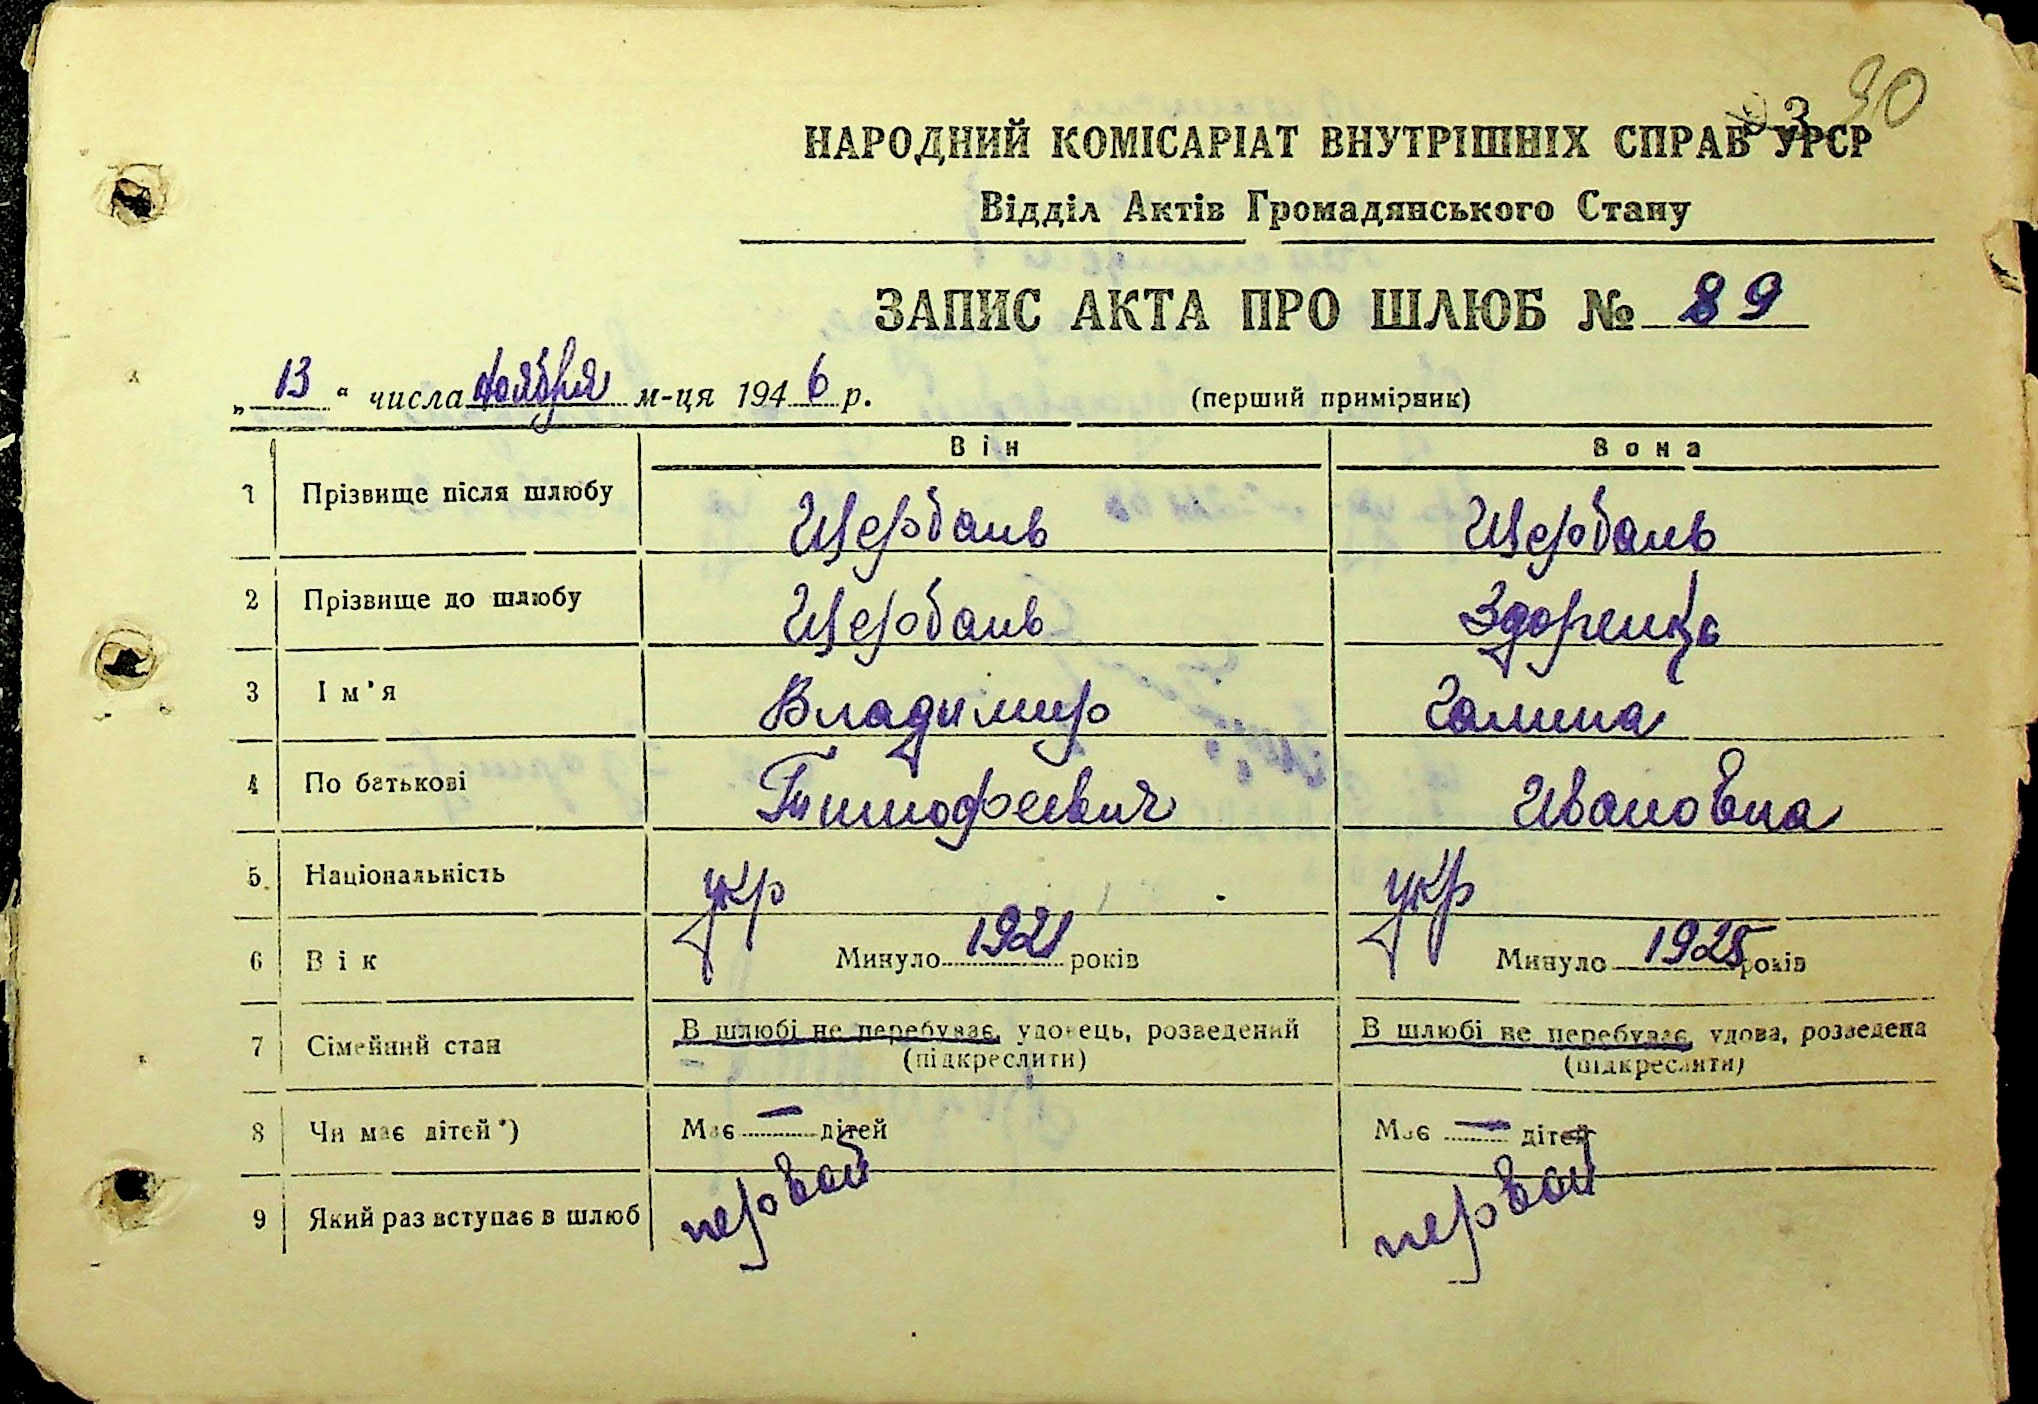 90
3
НАРОДНИЙ КОМІСАРІАТ ВНУТРІШНІХ СПРАВ УРСР
Відділ Актів Громадянського Стану
ЗАПИС АКТА ПРО ШЛЮБ № 89
„ 13 “ числа ноября м-ця 1946 р. (перший примірник)
Він Вона
1 Прізвище після шлюбу Щербань Щербань
2 Прізвище до шлюбу Щербань
3 Ім'я Владимир Галина
4 По батькові Тимофеевич Ивановна
5. Національність укр укр
6 Вік Минуло 1921 років Минуло 1925 років
7 Сімейний стан В шлюбі не перебуває, удовець, розведений В шлюбі не перебуває, удова, розведена
(підкреслити) (підкреслити)
8 Чи має дітей*) Має — дітей Має — дітей
9 Який раз вступає в шлюб первый первый